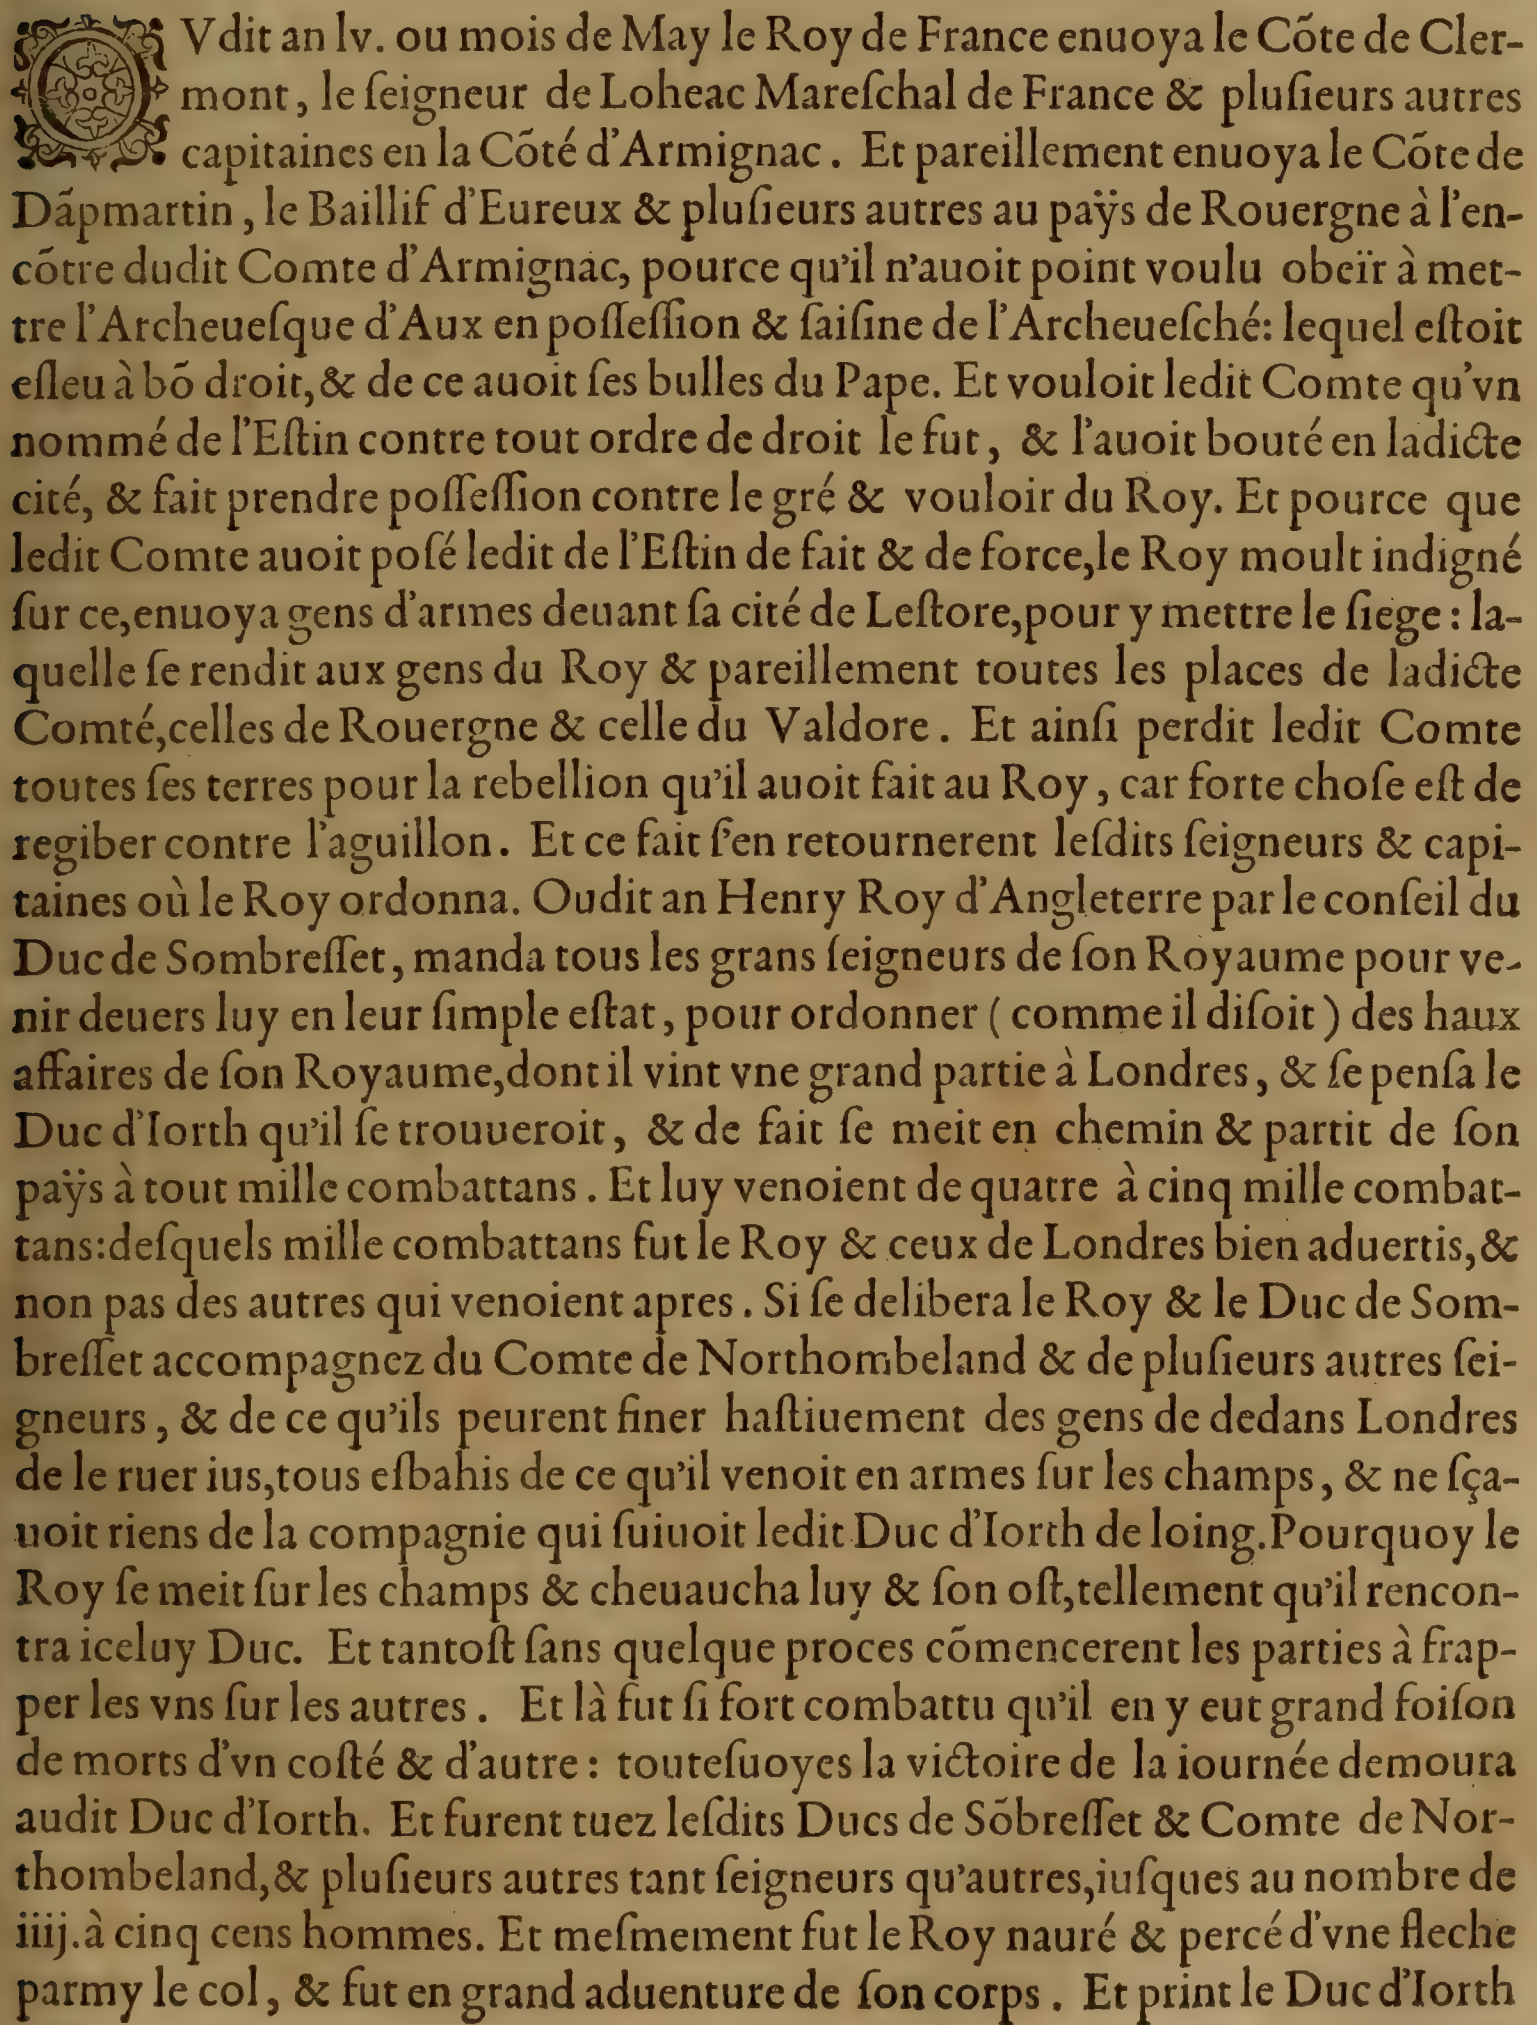 OVdit an lv. ou mois de May le Roy de France enuoya le Cõte de Cler-
mont, le ſeigneur de Loheac Mareſchal de France & pluſieurs autres
capitaines en la Cõté d'Armignac. Et pareillement enuoya le Cõte de
Dãpmartin, le Baillif d'Eureux & pluſieurs autres au paÿs de Rouergne à l'en-
cõtre dudit Comte d'Armignac, pource qu'il n'auoit point voulu obeïr à met-
tre l'Archeueſque d'Aux en poſſeſſion & ſaiſine de l'Archeueſché: lequel eſtoit
eſleu à bõ droit,& de ce auoit ſes bulles du Pape. Et vouloit ledit Comte qu'vn
nommé de l'Eſtin contre tout ordre de droit le fut, & l'auoit bouté en ladicte
cité, & fait prendre poſſeſſion contre le gré & vouloir du Roy. Et pource que
ledit Comte auoit poſé ledit de l'Eſtin de fait & de force,le Roy moult indigné
ſur ce,enuoya gens d'armes deuant ſa cité de Leſtore,pour y mettre le ſiege: la-
quelle ſe rendit aux gens du Roy & pareillement toutes les places de ladicte
Comté,celles de Rouergne & celle du Valdore. Et ainſi perdit ledit Comte
toutes ſes terres pour la rebellion qu'il auoit fait au Roy, car forte choſe eſt de
regiber contre l'aguillon. Et ce fait ſ'en retournerent leſdits ſeigneurs & capi-
taines où le Roy ordonna. Oudit an Henry Roy d'Angleterre par le conſeil du
Duc de Sombreſſet, manda tous les grans ſeigneurs de ſon Royaume pour ve-
nir deuers luy en leur ſimple eſtat, pour ordonner (comme il diſoit) des haux
affaires de ſon Royaume,dont il vint vne grand partie à Londres, & ſe penſa le
Duc d'Iorth qu'il ſe trouueroit, & de fait ſe meit en chemin & partit de ſon
paÿs à tout mille combattans. Et luy venoient de quatre à cinq mille combat-
tans:deſquels mille combattans fut le Roy & ceux de Londres bien aduertis,&
non pas des autres qui venoient apres. Si ſe delibera le Roy & le Duc de Som-
breſſet accompagnez du Comte de Northombeland & de pluſieurs autres ſei-
gneurs, & de ce qu'ils peurent finer haſtiuement des gens de dedans Londres
de le ruer ius,tous eſbahis de ce qu'il venoit en armes ſur les champs, & ne ſça-
uoit riens de la compagnie qui ſuiuoit ledit Duc d'Iorth de loing.Pourquoy le
Roy ſe meit ſur les champs & cheuaucha luy & ſon oſt,tellement qu'il rencon-
tra iceluy Duc. Et tantoſt ſans quelque proces cõmencerent les parties à frap-
per les vns ſur les autres. Et là fut ſi fort combattu qu'il en y eut grand foiſon
de morts d'vn coſté & d'autre: touteſuoyes la victoire de la iournée demoura
audit Duc d'Iorth. Et furent tuez leſdits Ducs de Sõbreſſet & Comte de Nor-
thombeland,& pluſieurs autres tant ſeigneurs qu'autres,iuſques au nombre de
iiij.à cinq cens hommes. Et meſmement fut le Roy nauré & percé d'vne fleche
parmy le col, & fut en grand aduenture de ſon corps. Et print le Duc d'Iorth